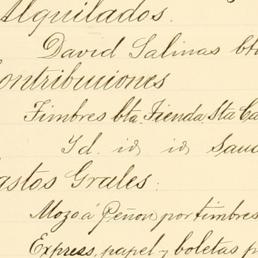 Alquilados.
David Salinas bta
Contribuciones
Timbres bta. Tienda. Sta Ca
Yd. id id Saud
Gastos Grales:
Mozo á Peñon por timbres
Express, papel y boletas p